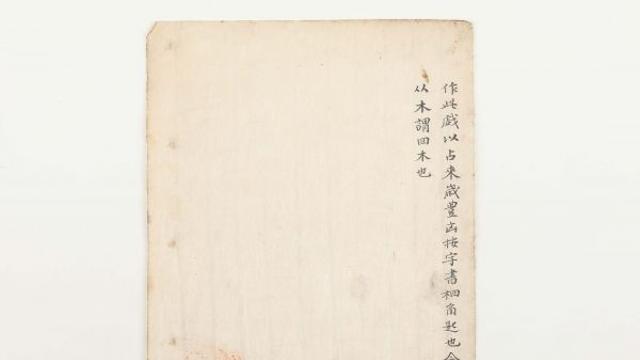 作此戯以占來歳豊㐫按字書柶角匙也
从木謂四木也